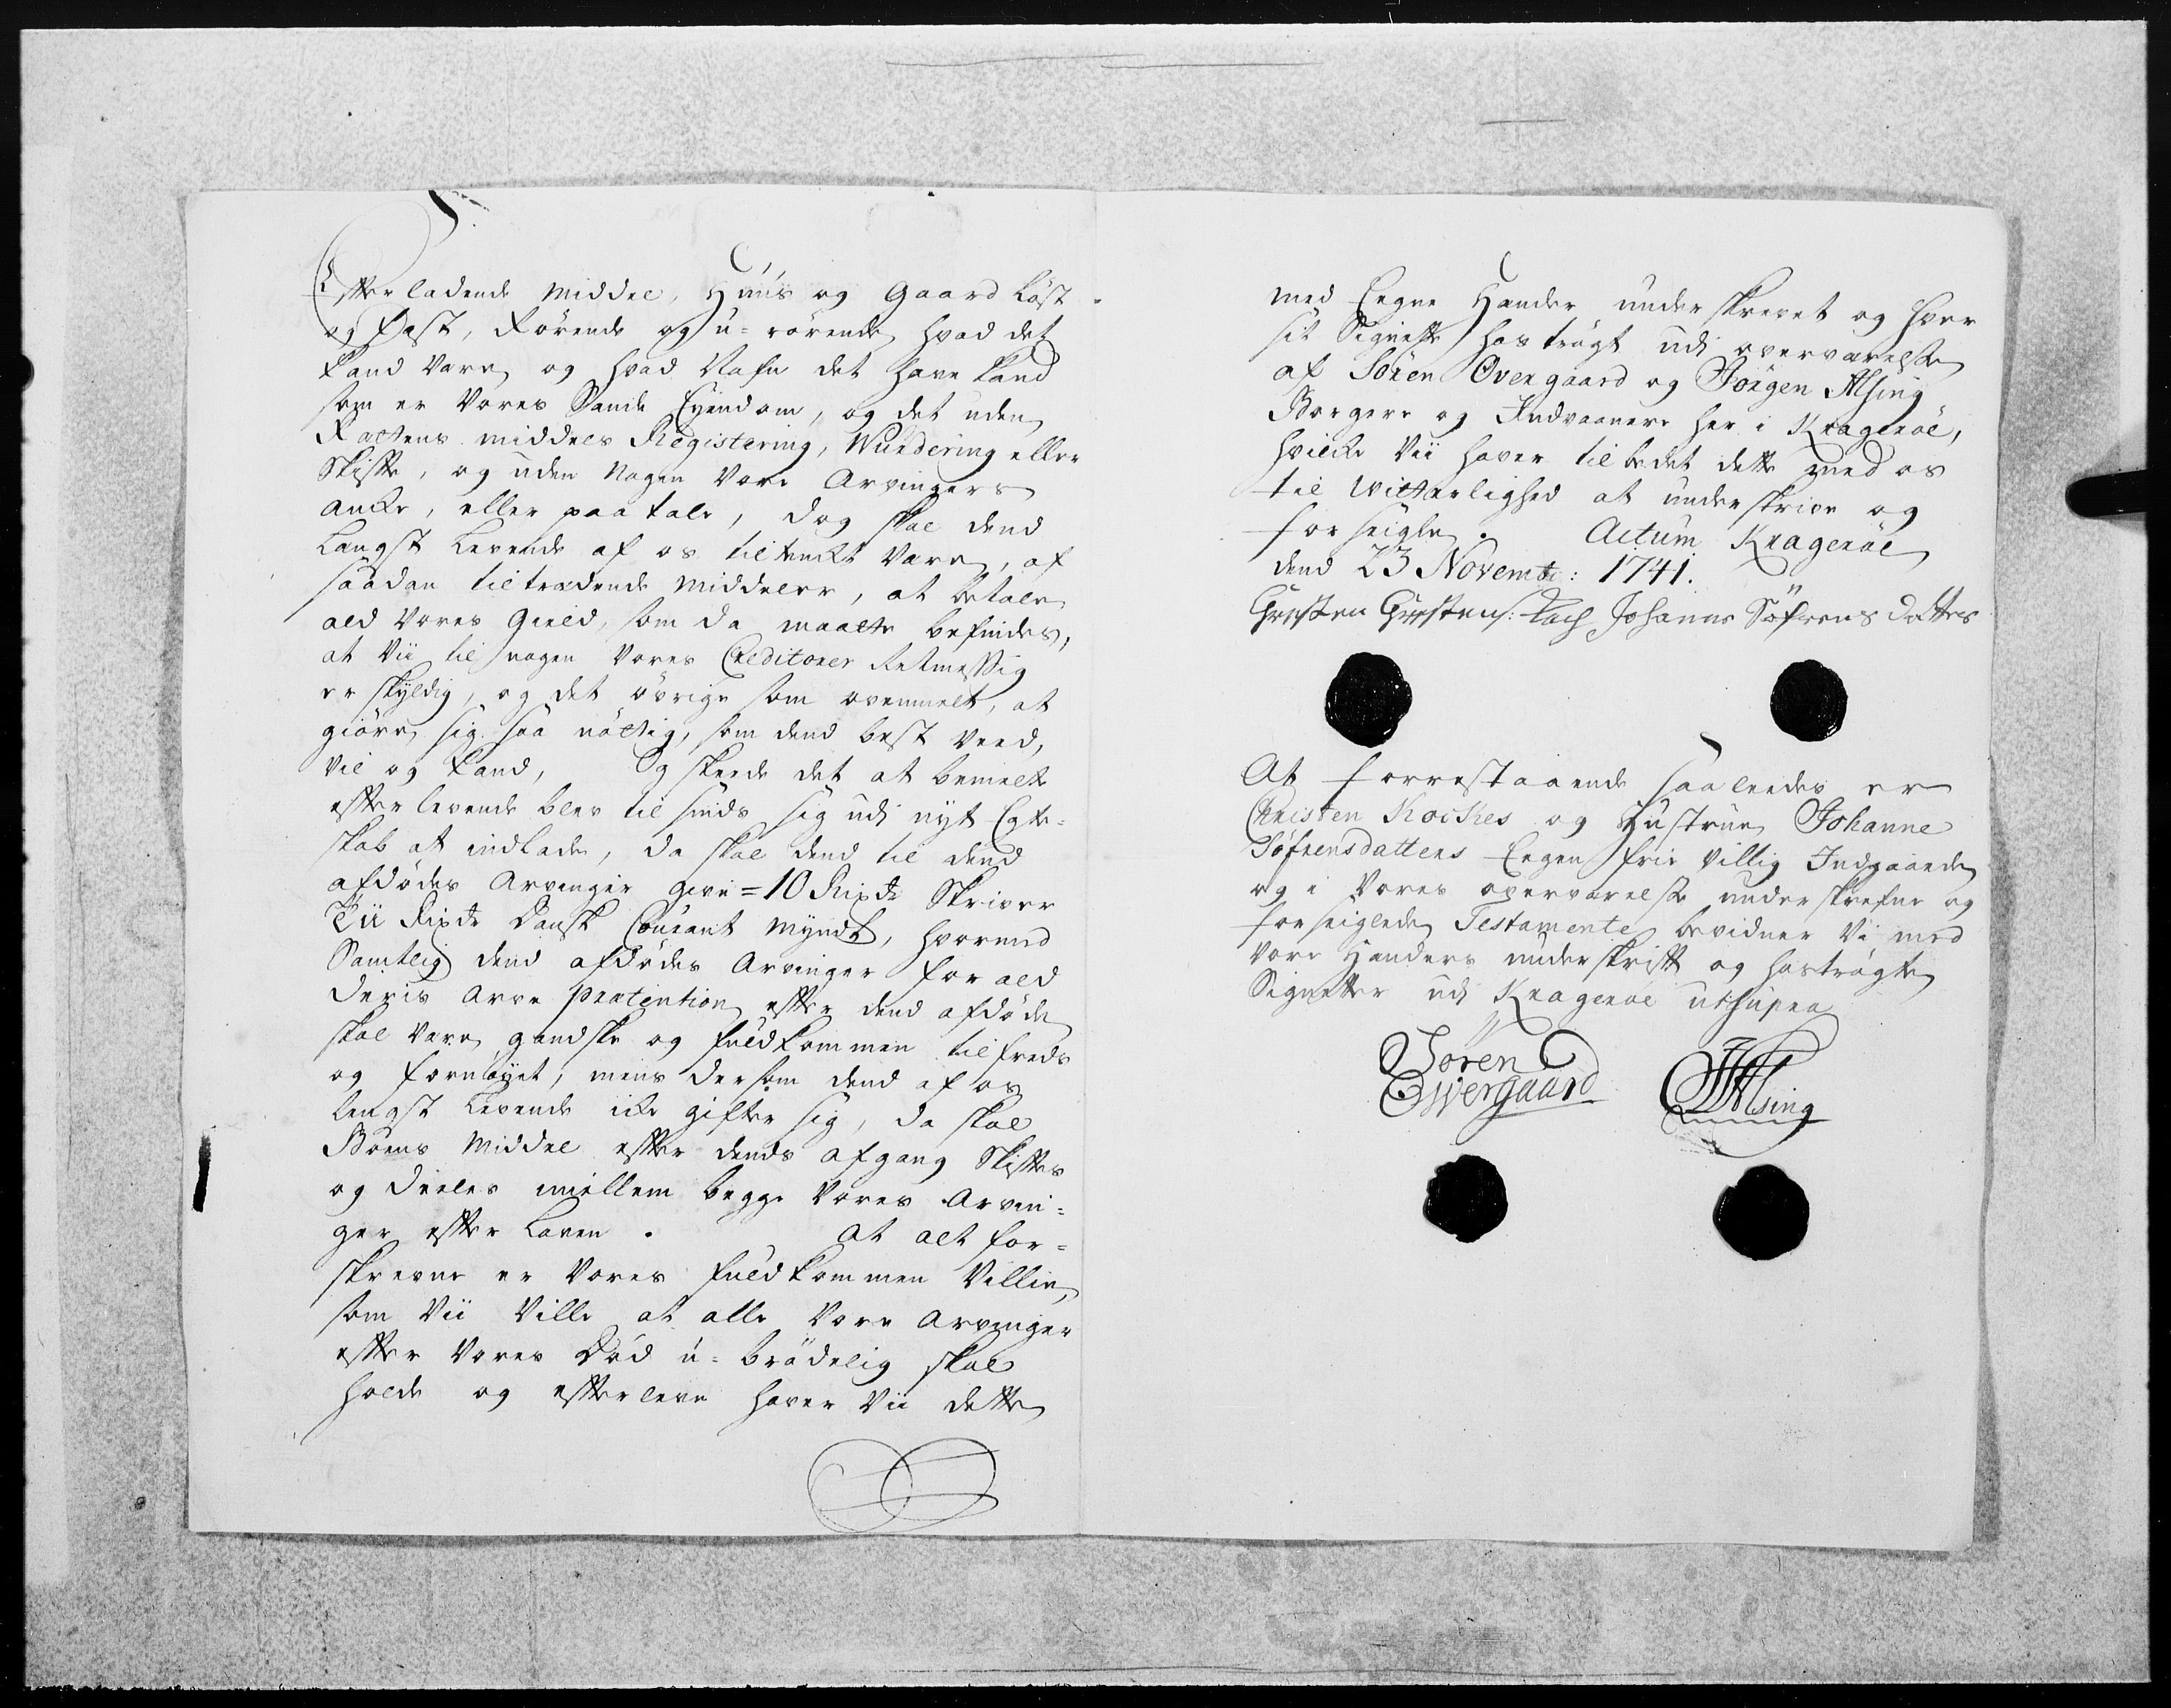 Efterladende Middel, Huus og Gaard Løst
og Fast, Rørende og u-rørende, hvad det
kand være, og hvad Nafn det have kand
som er Vores Sande Eyendom, og det uden
Rættens middels Registering, Wurdering eller
Skifte, og uden nogen Vore Arvingers
anke, eller paatale, dog skal dend
Længst Levende af os tiltenckt være, af
saadan tiltrædende Middeler, at betale
ald Vores Gield, som da maatte befindes,
at Vii til nogen Vores Creditorer Retmessig
er skyldig, og det øvrige som ovenmelt, at
giøre sig saa nøttig, som dend best veed,
vil og kand, Og skeede det at bemelte
efterlevende blev til sinds sig udi nyt Egte-
skab at indlade, da skal dend til dend
afdødes Arvinger give = 10 Rixdr Skriver
Tii Rixdr Dansk Courant Myndt, hvormed
Samtlig dend afdødes Arvinger for ald
deris Arve prætention efter dend afdøde
skal være gandske og fuldkommen tilfreds
og fornøyet, mens dersom dend af os
lengst Levende icke gifter sig, da skal
Boens Middel efter dends afgang Skiftes
og deeles imellem begge Vores Arvin-
ger efter Loven. At alt for-
skrevne er Vores fuldkommen Villie,
som Vii Ville at alle Vore Arvinger
efter Vores Død u-brødelig skal
holde og efterleve haver Vii dette
med Eegne Hænder underskrevet og hver
sit Signette hostrøgt udi overværelse
af Sören Övergaard og Jörgen Alsing
Borgere og Indvaanere her i Krageröe,
hvilke Vii haver tilbedet dette med os
til Vitterlighed at underskrive og
forseigle. Actum Krageröe
dend 23 Novembr: 1741.
Christen Christens: Koch Johanne Söfrens datter
At forrestaaende saaleedes er
Christen Kockes og Hustrue Johanne
Söfrensdatters Eegen frie villig Indgaaende
og i Vores overværelse underskrefne og
forseiglede Testamente bevidner Vi med
vore Hænders underskrift og hostrøgte
Signetter udi Krageröe ut supra
Sören
Owergaard
JAlsing